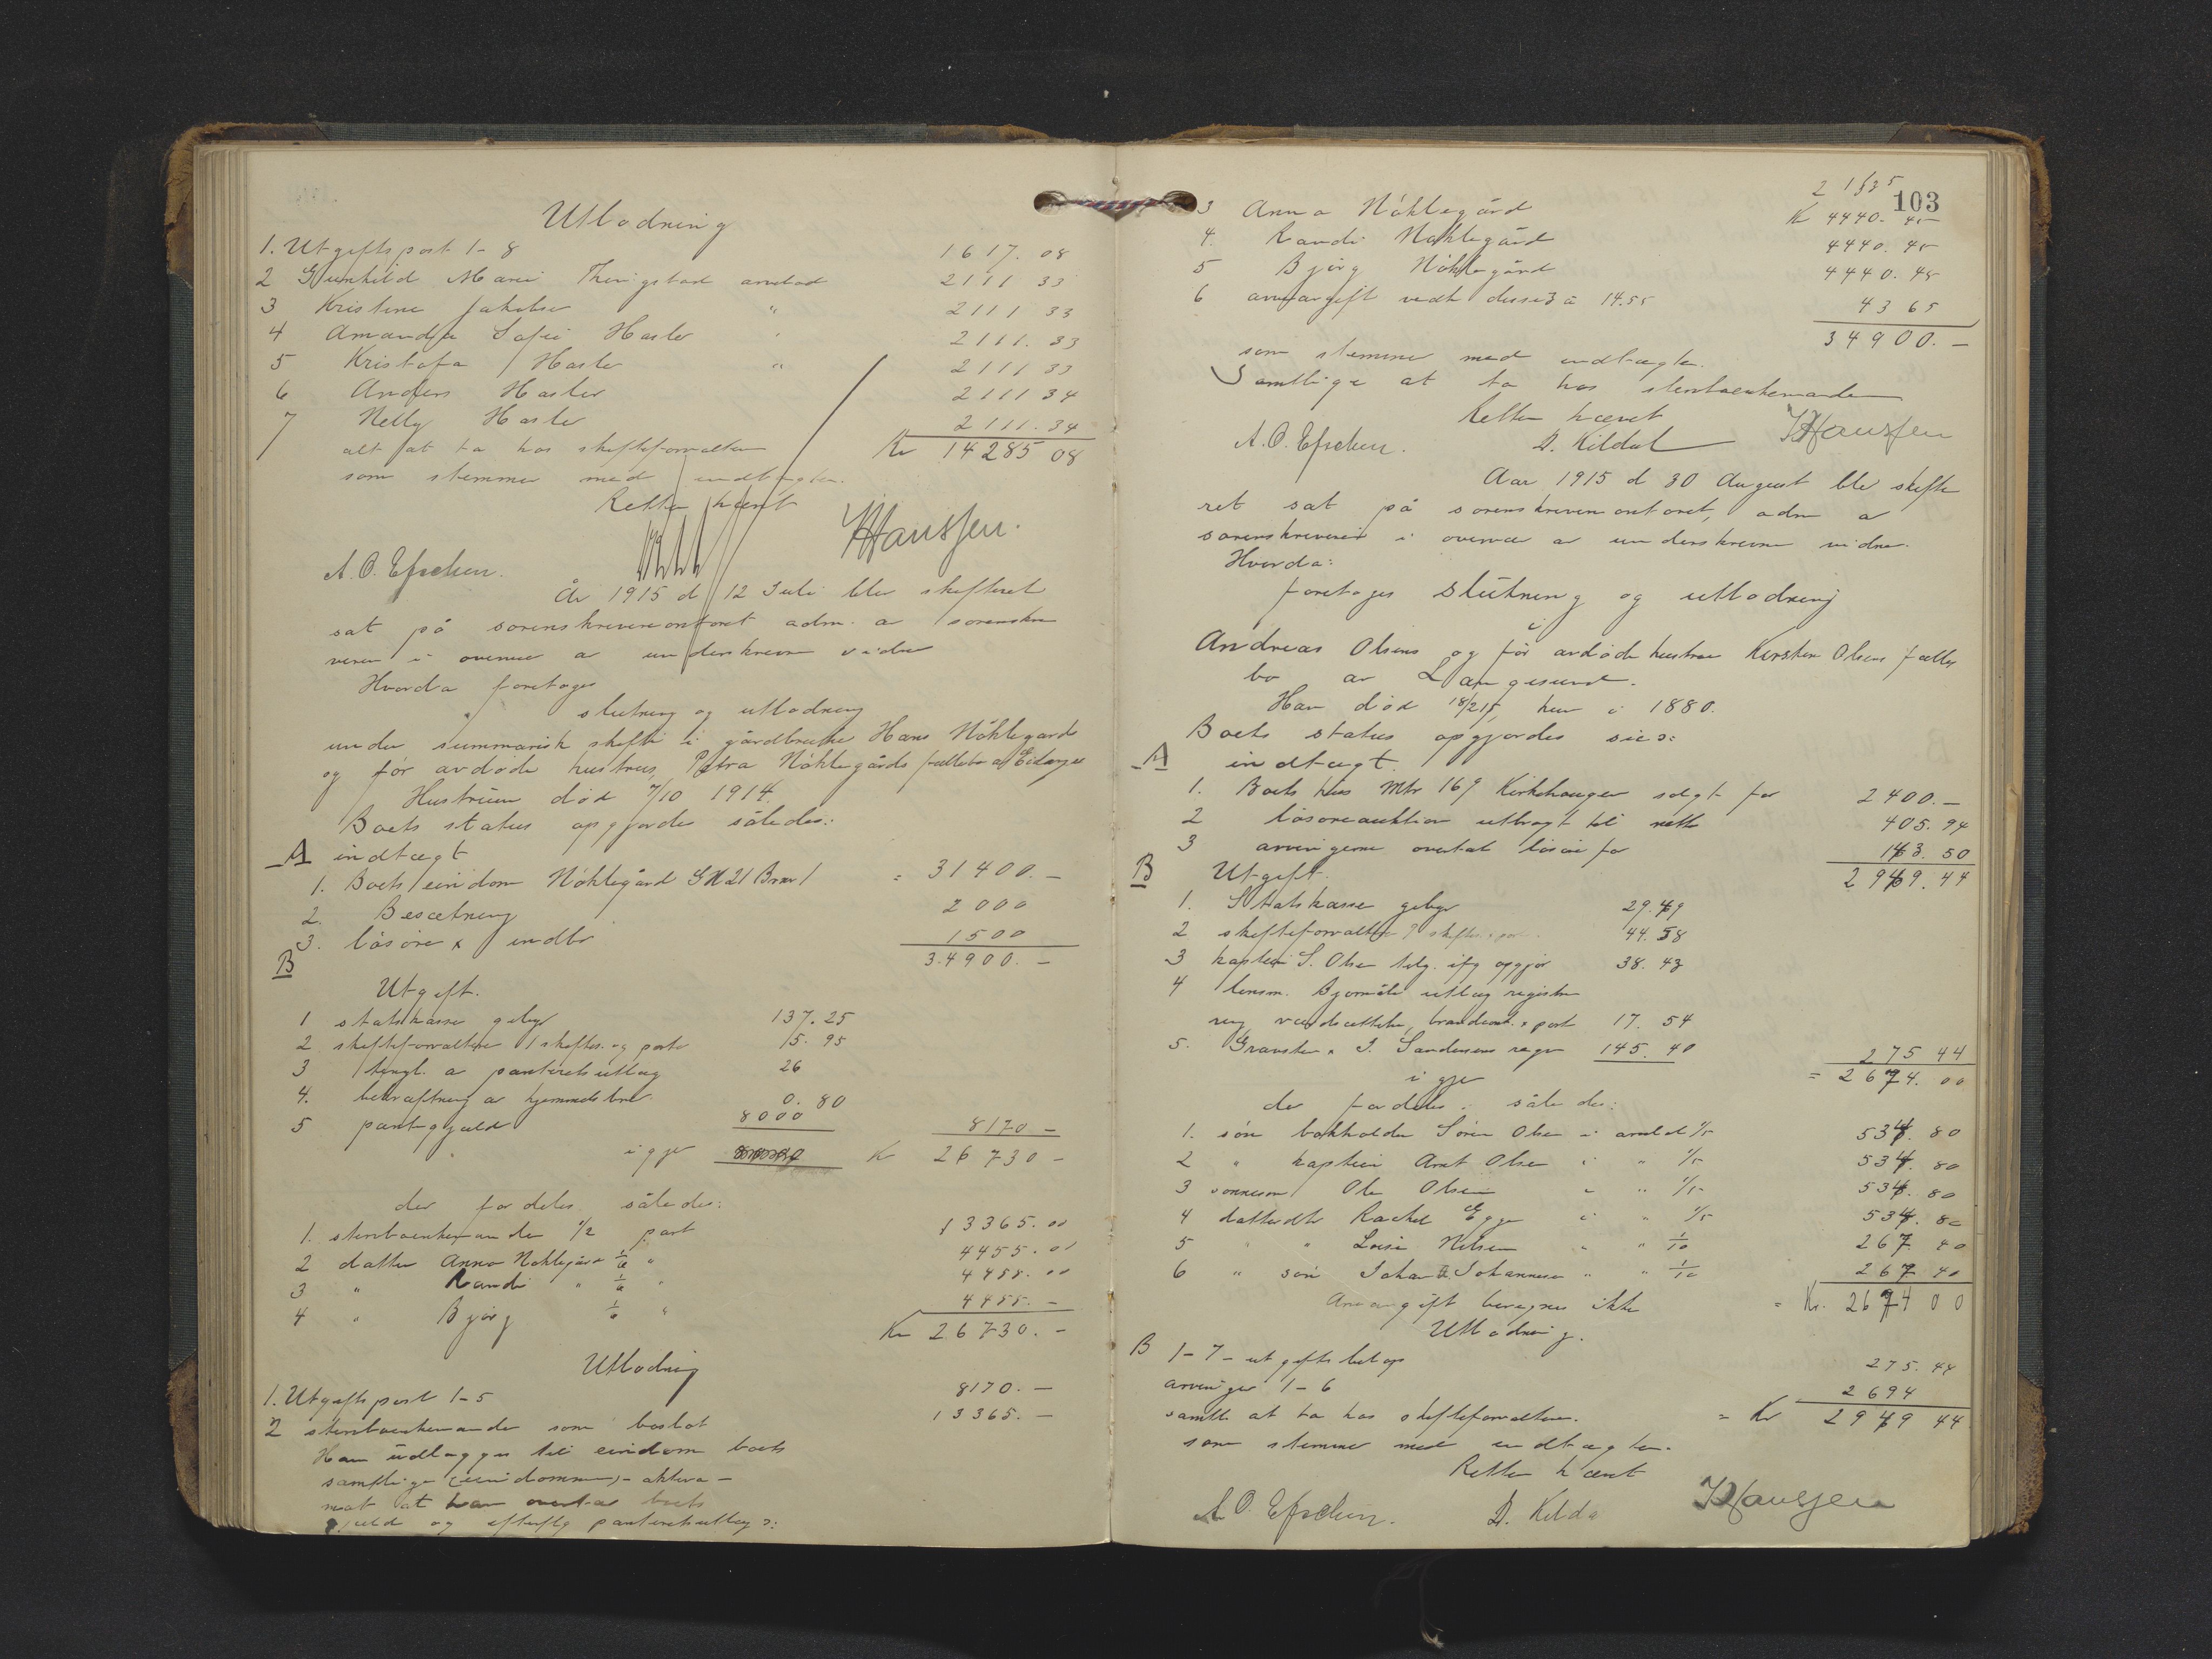 Utlodning
1. Utgiftspost 1-8 1617.08
2 Gunhild Marie Thringstad arvelod 2111 33
3 Kristine Jakobsen " 2111 33
4 Amanda Sofie Hasler " 2111.33
5 Kristofa Hasler " 2111 33
6 Anders Hasler 2111 34
7 Nelly Hasler 2111.34
alt at ta hos skifteforvalteren Kr 14285 08
som stemmer med indtægten.
Retten hævet
A.O. Efschen. Hanssen.
År 1915 d 12 Juli blev skifteret
sat på sorenskriverkontoret adm. a sorenskri
veren i overvær a underskrevne vidner
Hvorda foretoges
slutning og utlodning
under summarisk skifte i gårdbruker Hans Nöklegårds
og før avdöde hustrus, Petra Nöklegårds fællesbo a Eidanger
Hustruen död 7/10 1914.
Boets status opgjordes således:
A indtægt
1. Boets eiendom Nöklegård GN 21 Brnr 1 = 31400.-
2. Besætning 2000
3. lösöre x indbo 1500
34900.-
B
Utgift.
1 statskasse gebyr 137.25
2 skifteforvaltere 1 skifters. og porto 15.95
3 tingl. a panteretsutlæg 26
4. bekræftning a hjemmelsbrev 0.80
5 pantegjæld 8000 8170 -
igjen K 26730 -
der fordeles således:
1. sterboenkemanden 1/2 part 13365.00
2 datter Anna Nöklegård 1/6 " 4455.00
3 " Randi " 1/6 " 4455.00
4 " Björg 1/6 " 4455.-
Kr 26730.-
Utlodning
1. Utgiftspost 1-5 8170.-
2 sterboenkemanden som boslod 13365.-
Han udlægges til eiendom boets
samtlige (eiendommer) - aktiva -
mot at han overtar boets
gjæld og efterflg panteretsutlæg o:
103
21535
3 Anna Nöklegård Kr 4440.45
4. Randi Nöklegård 4440.45
5 Björg Nöklegård 4440.45
6 arveavgift vedk disse 3 a 14.55 43 65
34900.-
som stemmer med indtægten.
Samtlige at ta hos sterboenkemanden
Retten hævet
A.O. Efschen. D. Kildal Hanssen
Aar 1915 d 30 August blev skifte
ret sat på sorenskriverkontoret, adm a
sorenskriveren i overvær a underskrevne vidner.
Hvorda:
foretoges slutning og utlodning
i
Andreas Olsens og för avdöde hustru Kirsten Olsens fælles
bo av Langesund.
Han död 18/2 15, hun i 1880.
Boets status opgjordes sies:
A indtægt.
1. Boets hus Mtr 169 Kirkehaugen solgt for 2400.-
2 lösöreauktion utbragt til netto 405.94
3 arvingerne overtat lösöre for 163.50
2969.44
B Utgift.
1. Statskasse gebyr 29.49
2 skifteforvalter 44.58
3 kaptein S. Olsen tilg. ifg opgjör 38.43
4 lensm. utlæg registre
ring værdsættelse, x port 17.54
5. Gravsten x J. Sandersens regn 145.40 275 44
igjen = 2694.00
der fordeles således:
1. sön bokholder Sören Olsen i arvelod 1/5 538.80
2 " kaptein Arnt Olsen i " 1/5 538.80
3 sönnesön Ole Olsen " " 1/5 538.80
4 datterdtr Rachel Egge i " 1/5 538.80
5 " " Lovise Nilsen " " 1/10 269.40
6 " sön Johan Johannesen " " 1/10 269 40
Arveavgift beregnes ikke = Kr. 2694 00
Utlodning.
B 1-7 - utgiftsbelöp 275.44
arvinger 1-6 2694
samtl. at ta hos skifteforvalteren. = Kr 2969 44
som stemmer med indtægten.
Retten hævet
A.O. Efschen. D. Kildal Hanssen